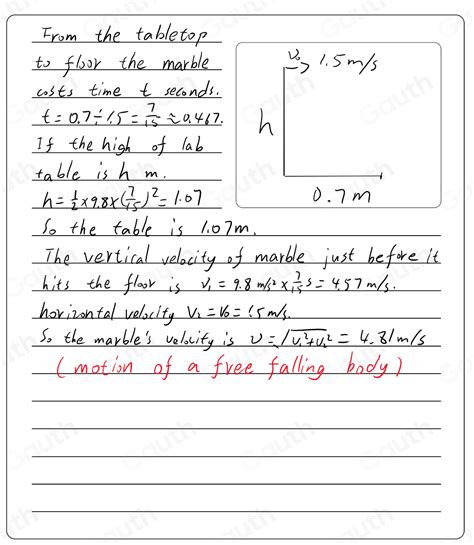 From the tabletop
to floor the marble
costs time t seconds.
t = 0.7 ÷ 1.5 = 7/15 ≈ 0.467.
If the high of lab
table is h m.
h = 1/2 × 9.8 × (7/15)² = 1.07
So the table is 1.07m.
V₀ → 1.5 m/s
h
0.7 m
The vertical velocity of marble just before it
hits the floor is V₁ = 9.8 m/s² × 7/15 s = 4.57 m/s.
horizontal velocity V₂ = V₀ = 1.5 m/s.
So the marble's velocity is υ = √V₁²+V₂² = 4.81 m/s
(motion of a free falling body)
Gauth